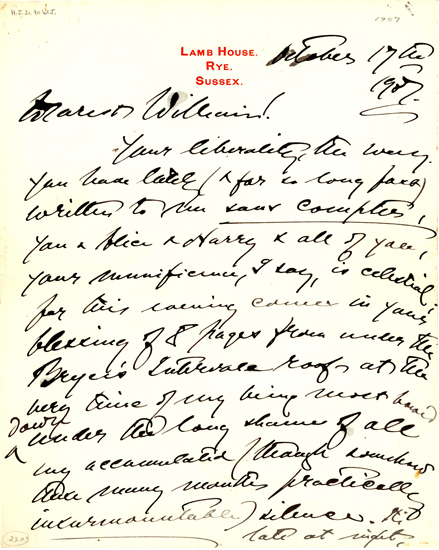 H.J. to W.J.
1907
LAMB HOUSE.
RYE.
SUSSEX.
October 17th
1907.
Dearest William!
Your liberality, the way
you have lately (& for so long past)
written to me sans compter,
you & Alice & Harry & all of you,
your munificence, I say, is celestial;
for this evening comes in your
blessing of 8 pages from under the
Bryce's Intervale roof at the
very time of my being most bowed
down
under the long shame of all
my accumulated (though somehow
these many months practically
insurmountable) silence. It is
late at night,
2203